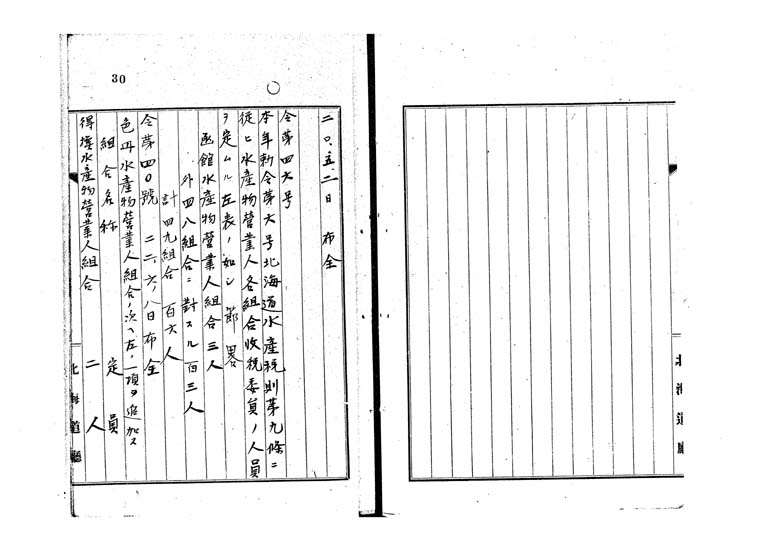 30
二〇、五、二日 布令
令第四六号
本年勅令第六号北海道水産税則第九條ニ
従ヒ水産物営業人各組合收税委員ノ人員
ヲ定ムル左表ノ如シ 節畧
函館水産物営業人組合 三人
外四八組合ニ對スル百三人
計四九組合 百六人
令第四〇號 二二、六、八日布令
色丹水産物営業人組合ノ次ヘ左ノ一項ヲ追加ス
組合名称 定員
得撫水産物営業人組合 二人
北海道廳
北海道廳